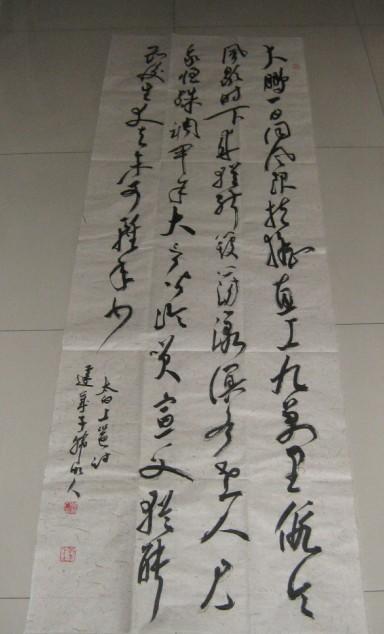 大鹏一日同风起扶摇直上九萬里假令
风歇时下来猶能簸却滄溟水世人见
我恒殊调闻余大言皆冷笑宣父猶能
畏后生丈夫未可轻年少
太白上邕诗